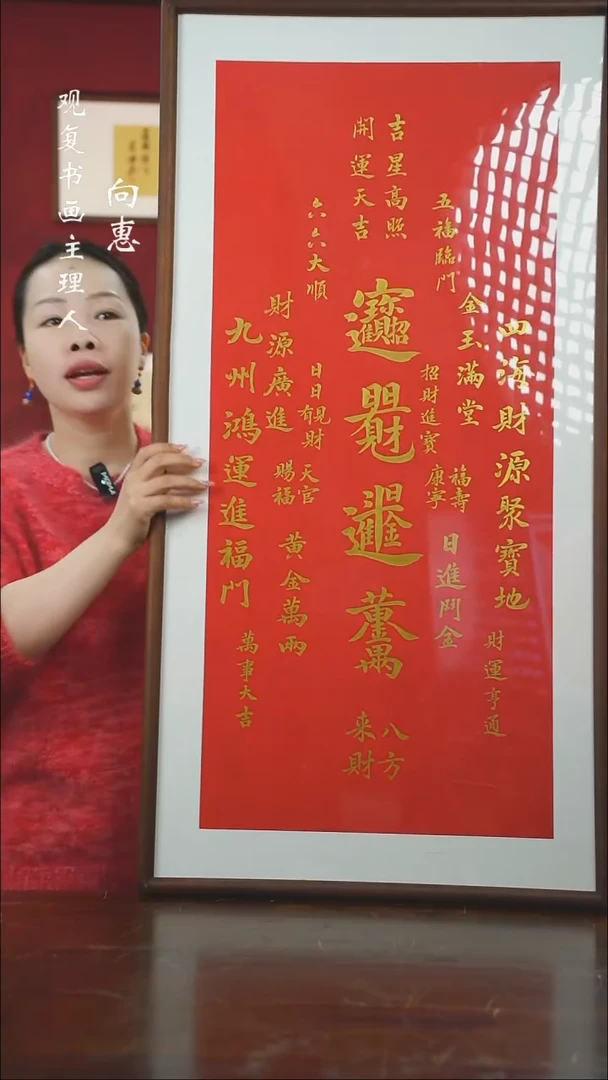 观复书画主理人
向惠
吉星高照
開運天吉
四海財源聚寶地
財運亨通
五福臨門
金玉滿堂
招財進寶
福壽
康寧
日進鬥金
六六大順
日日有見財
天官
賜福
財源廣進
黄金萬兩
九州鴻運進福門
萬事大吉
八方
来財